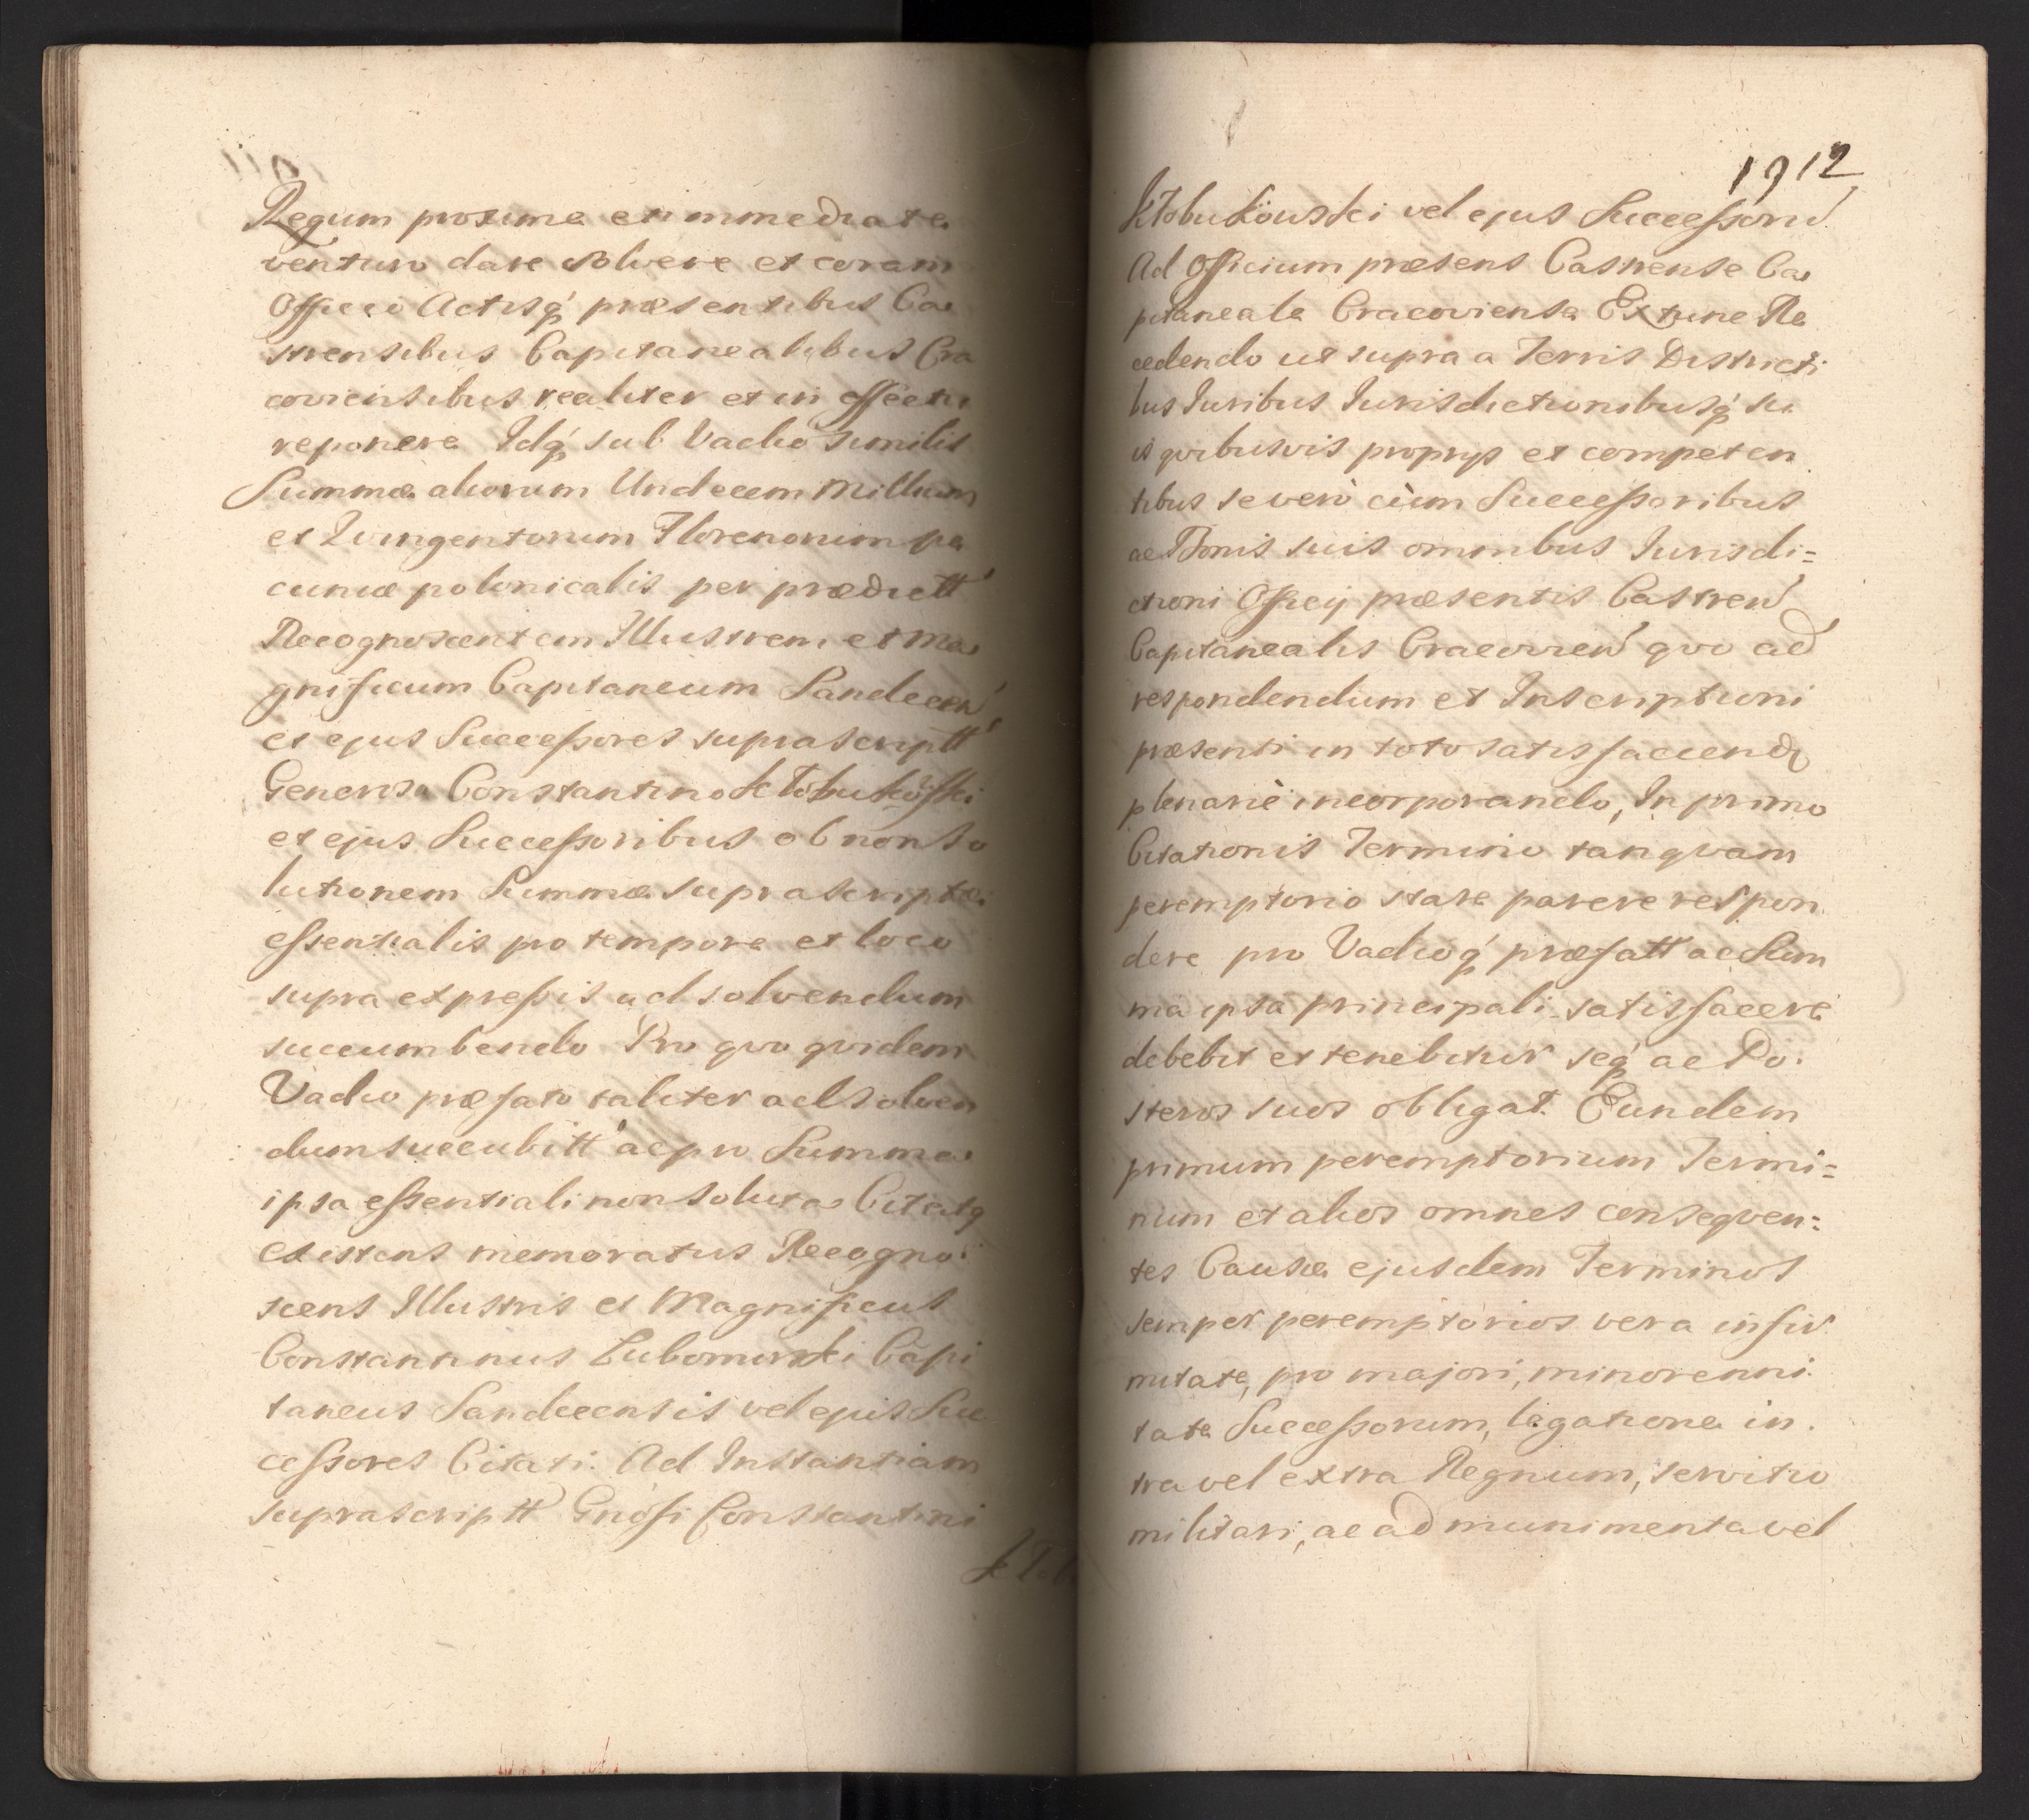 Regum proxime et immediate
venturo dare solvere et coram
Officio Actisq́ præsentibus Ca
strensibus Capitanealibus Cra
coviensibus realiter et in effectu
reponere Idq́ sub Vadio similis
Summæ aliorum Undecem Millium
et Qvingentorum Florenorum pe
cuniæ polonicalis per prædictt
Recognoscentem Illustrem et Ma
gnificum Capitaneum Sandecen
et ejus Successores suprascriptt
Generoso Constantino Kłobukowski
et ejus Successoribus ob non so
lutionem Summæ suprascriptæ
essentialis pro tempore et loco
supra expressis ad solvendum
succumbendo Pro qvo qvidem
Vadio præfato taliter ad solven
dum succubitt ac pro Summa
ipsa essentiali non soluta Citatq
existens memoratus Recogno
scens Illustris et Magnificus
Constantinus Lubomirski Capi
taneus Sandecensis vel ejus Suc
cessores Citati. Ad Instantiam
suprascriptt Gnosi Constantini
Kłob
1912
Kłobukowski vel ejus Successorū
Ad Officium præsens Castrense Ca
pitaneale Cracoviense Extunc Re
cedendo ut supra a Terris Districti
bus Iuribus Iurisdictionibusq́ su
is qvibusvis proprys et competen
tibus se verò cùm Successoribus
ac Bonis suis omnibus Iurisdi=
ctioni Officij præsentis Castren
Capitanealis Cracovien qvo ad
respondendum et Inscriptioni
præsenti in toto satisfaciend
plenariè incorporando, In primo
Citationis Termino tanqvam
peremptorio stare parere respon
dere pro Vadioq́ præfatt ac Sum
ma ipsa principali satisfacere
debebit et tenebitur seq́ ac Po
steros suos obligat. Eundem
primum peremptorium Termi=
num et alios omnes conseqven=
tes Causæ ejusdem Terminos
semper peremptorios vera infir
mitate, pro majori, minorenni
tate Successorum, legatione in
tra vel extra Regnum, servitio
militari, ac ad munimenta vel